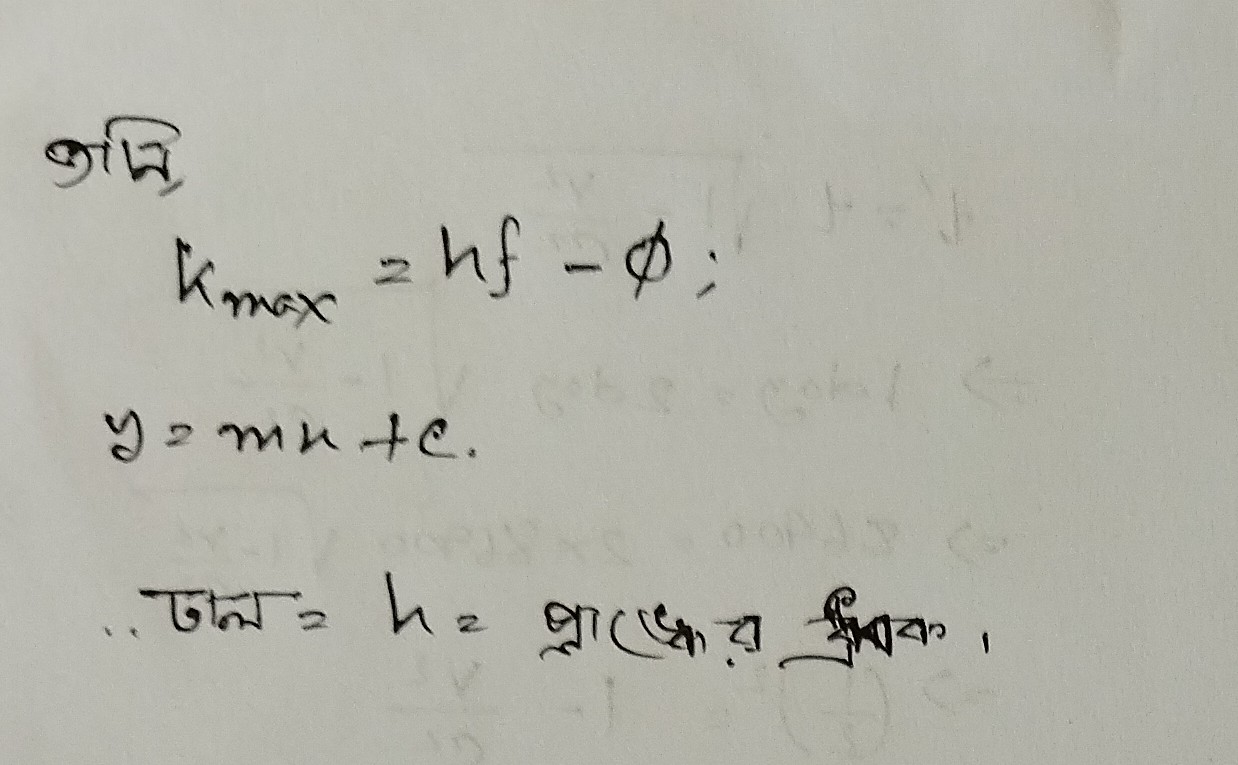 জানি,
K_max = hf - Φ;
y = mx + c.
∴ ঢাল = h = প্লাঙ্কের ধ্রুবক।